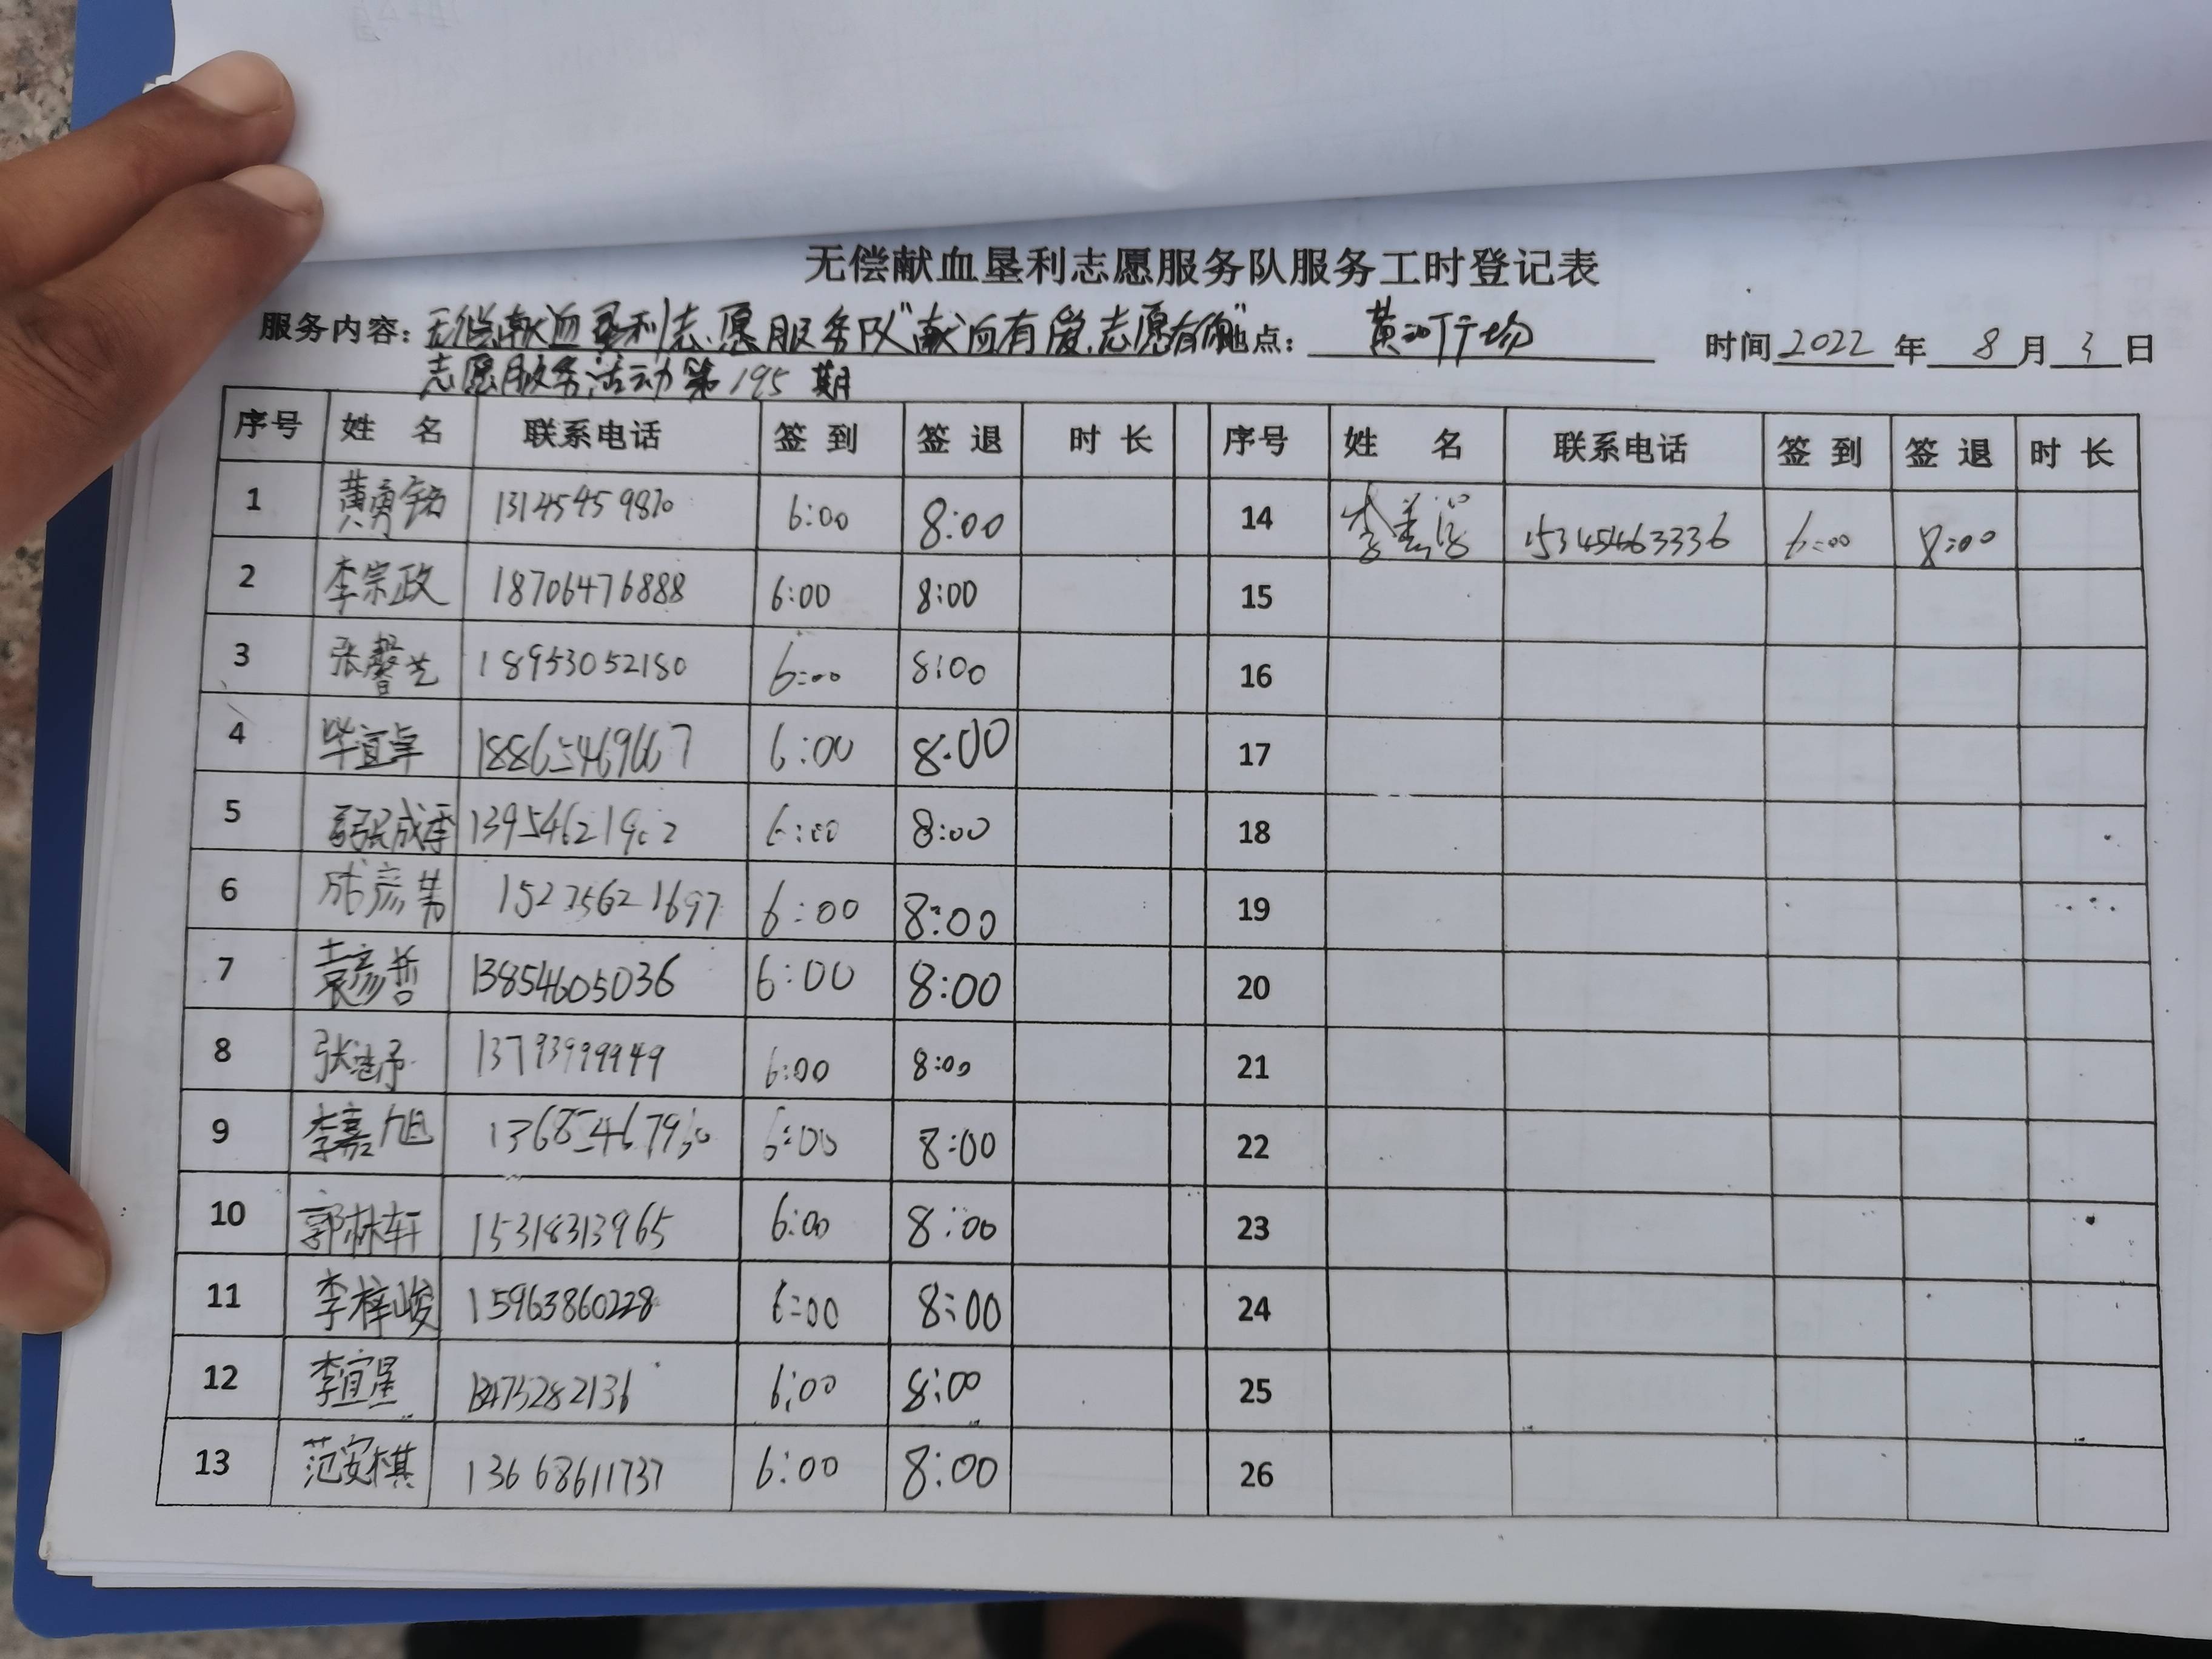 无偿献血垦利志愿服务队服务工时登记表
服务内容：无偿献血垦利志愿服务队“献血有爱.志愿有你”地点：黄河广场 时间2022年8月3日
志愿服务活动第195期
序号 姓名 联系电话 签到 签退 时长 序号 姓名 联系电话 签到 签退 时长
1 黄勇铭 13145459870 6:00 8:00 14 李 15345463336 6:00 8:00
2 李宗政 18706476888 6:00 8:00 15
3 张馨艺 18953052180 6:00 8:00 16
4 毕宜卓 18865469667 6:00 8:00 17
5 成季 13954621902 6:00 8:00 18
6 彦 15275621697 6:00 8:00 19
7 袁彦哲 13854605036 6:00 8:00 20
8 张 13793999949 6:00 8:00 21
9 李嘉旭 6:00 8:00 22
10 郭林轩 15318313965 6:00 8:00 23
11 李梓峻 15963860228 6:00 8:00 24
12 李宜星 13475282136 6:00 8:00 25
13 范安棋 13668611737 6:00 8:00 26